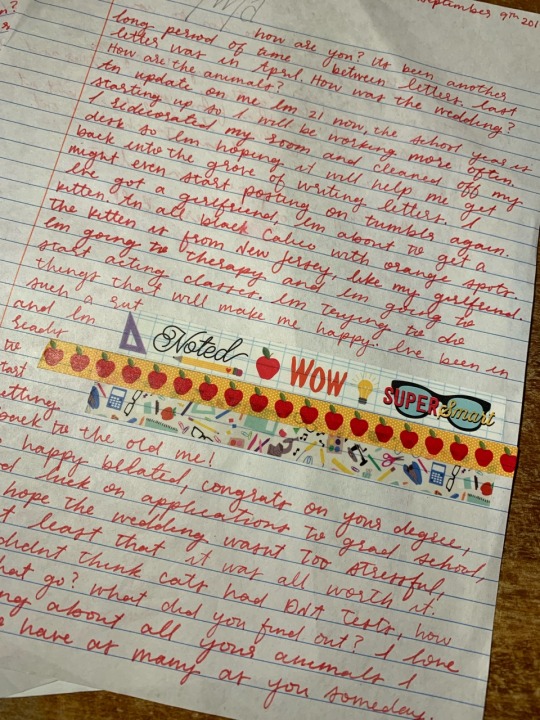 September 9th 201
how are you? its been another
long period of time between letters, last
letter was in April. How was the wedding?
How are the animals?
to update on me Im 21 now, the school year is
starting up so I will be working more often.
I redecorated my room and cleaned off my
desk so Im hoping it will help me get
back into the grove of writing letters. I
might even start posting on tumblr again.
Ive got a girlfriend. Im about to get a
kitten. An all black Calico with orange spots.
The kitten is from New Jersey, like my girlfriend.
Im going to therapy and Im going to
start acting classes. Im trying to do
things that will make me happy. Ive been in
such a rut
and Im
ready
to
start
Noted
WOW
SUPER Smart
getting
back to the old me!
happy belated, congrats on your degree,
luck on applications to grad school,
hope the wedding wasnt too stressful,
least that it was all worth it.
didnt think cats had DNA tests, how
that go? What did you find out? I love
about all your animals I
have as many as you someday